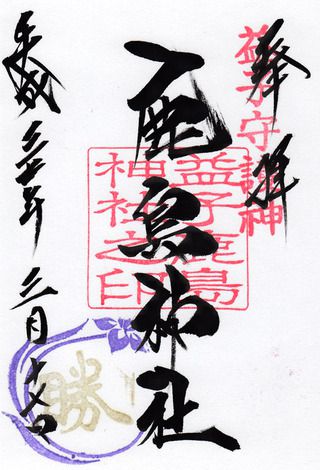 奉拝
益子守護神
鹿島神社
益子鹿島
神社之印
平成 年 月十七日
勝